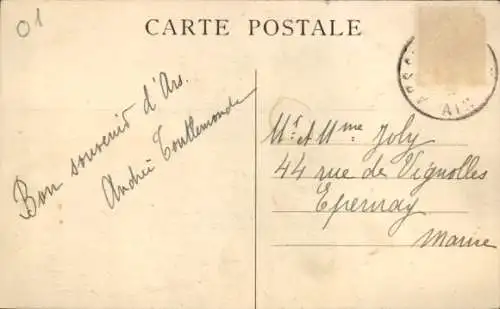 01
CARTE POSTALE
ARS
AIN
Bon souvenir d'Ars.
Andrée Toutlemonde
Mr & Mme Joly
44 rue de Vignolles
Epernay
Marne